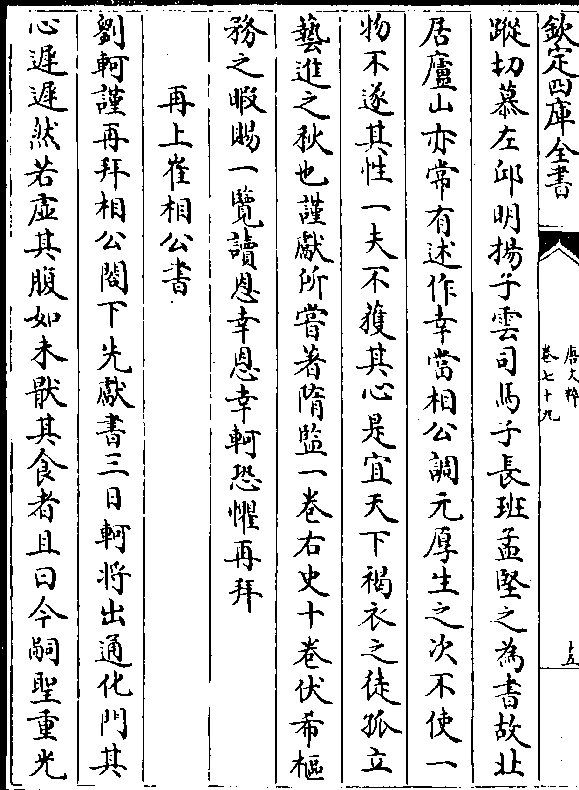 欽定四庫全書
唐文粹
卷七十九
十五
蹤切慕左邱明揚子雲司馬子長班孟堅之為書故北
居廬山亦常有述作幸當相公調元厚生之次不使一
物不遂其性一夫不獲其心是宜天下褐衣之徒孤立
藝進之秋也謹獻所嘗著隋監一卷右史十卷伏希樞
務之暇賜一覽讀恩幸恩幸軻恐懼再拜
再上崔相公書
劉軻謹再拜相公閣下先獻書三日軻將出通化門其
心遲遲然若虛其腹如未猒其食者且曰今嗣聖重光